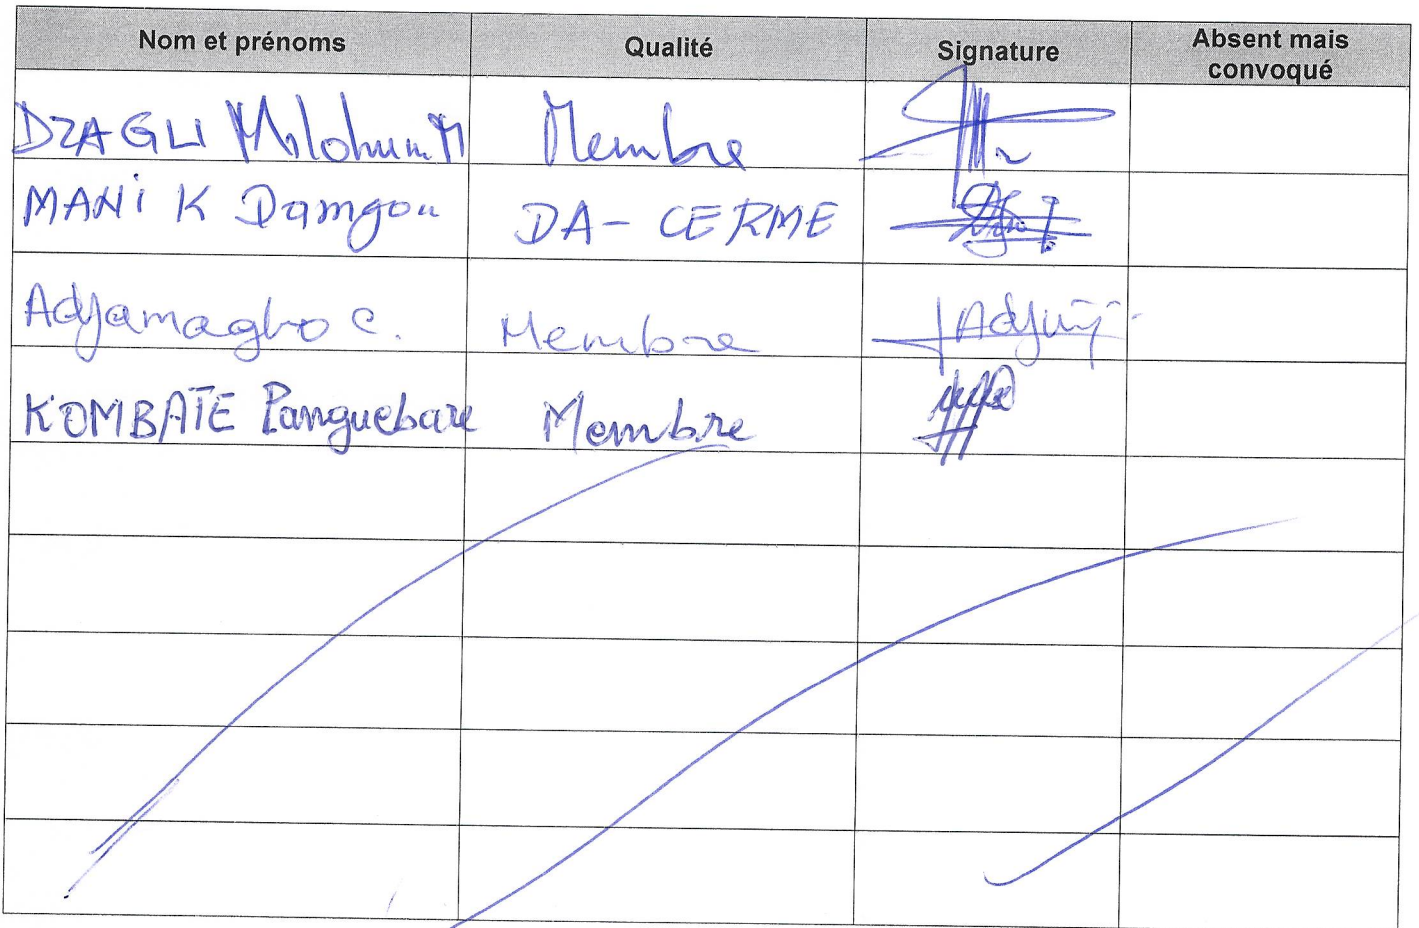 Nom et prénoms Qualité Signature Absent mais convoqué
DZAGLI Milohum M Membre
MANI K Damgou DA- CERME
Adjamagbo C. Membre
KOMBATE Panguebare Membre